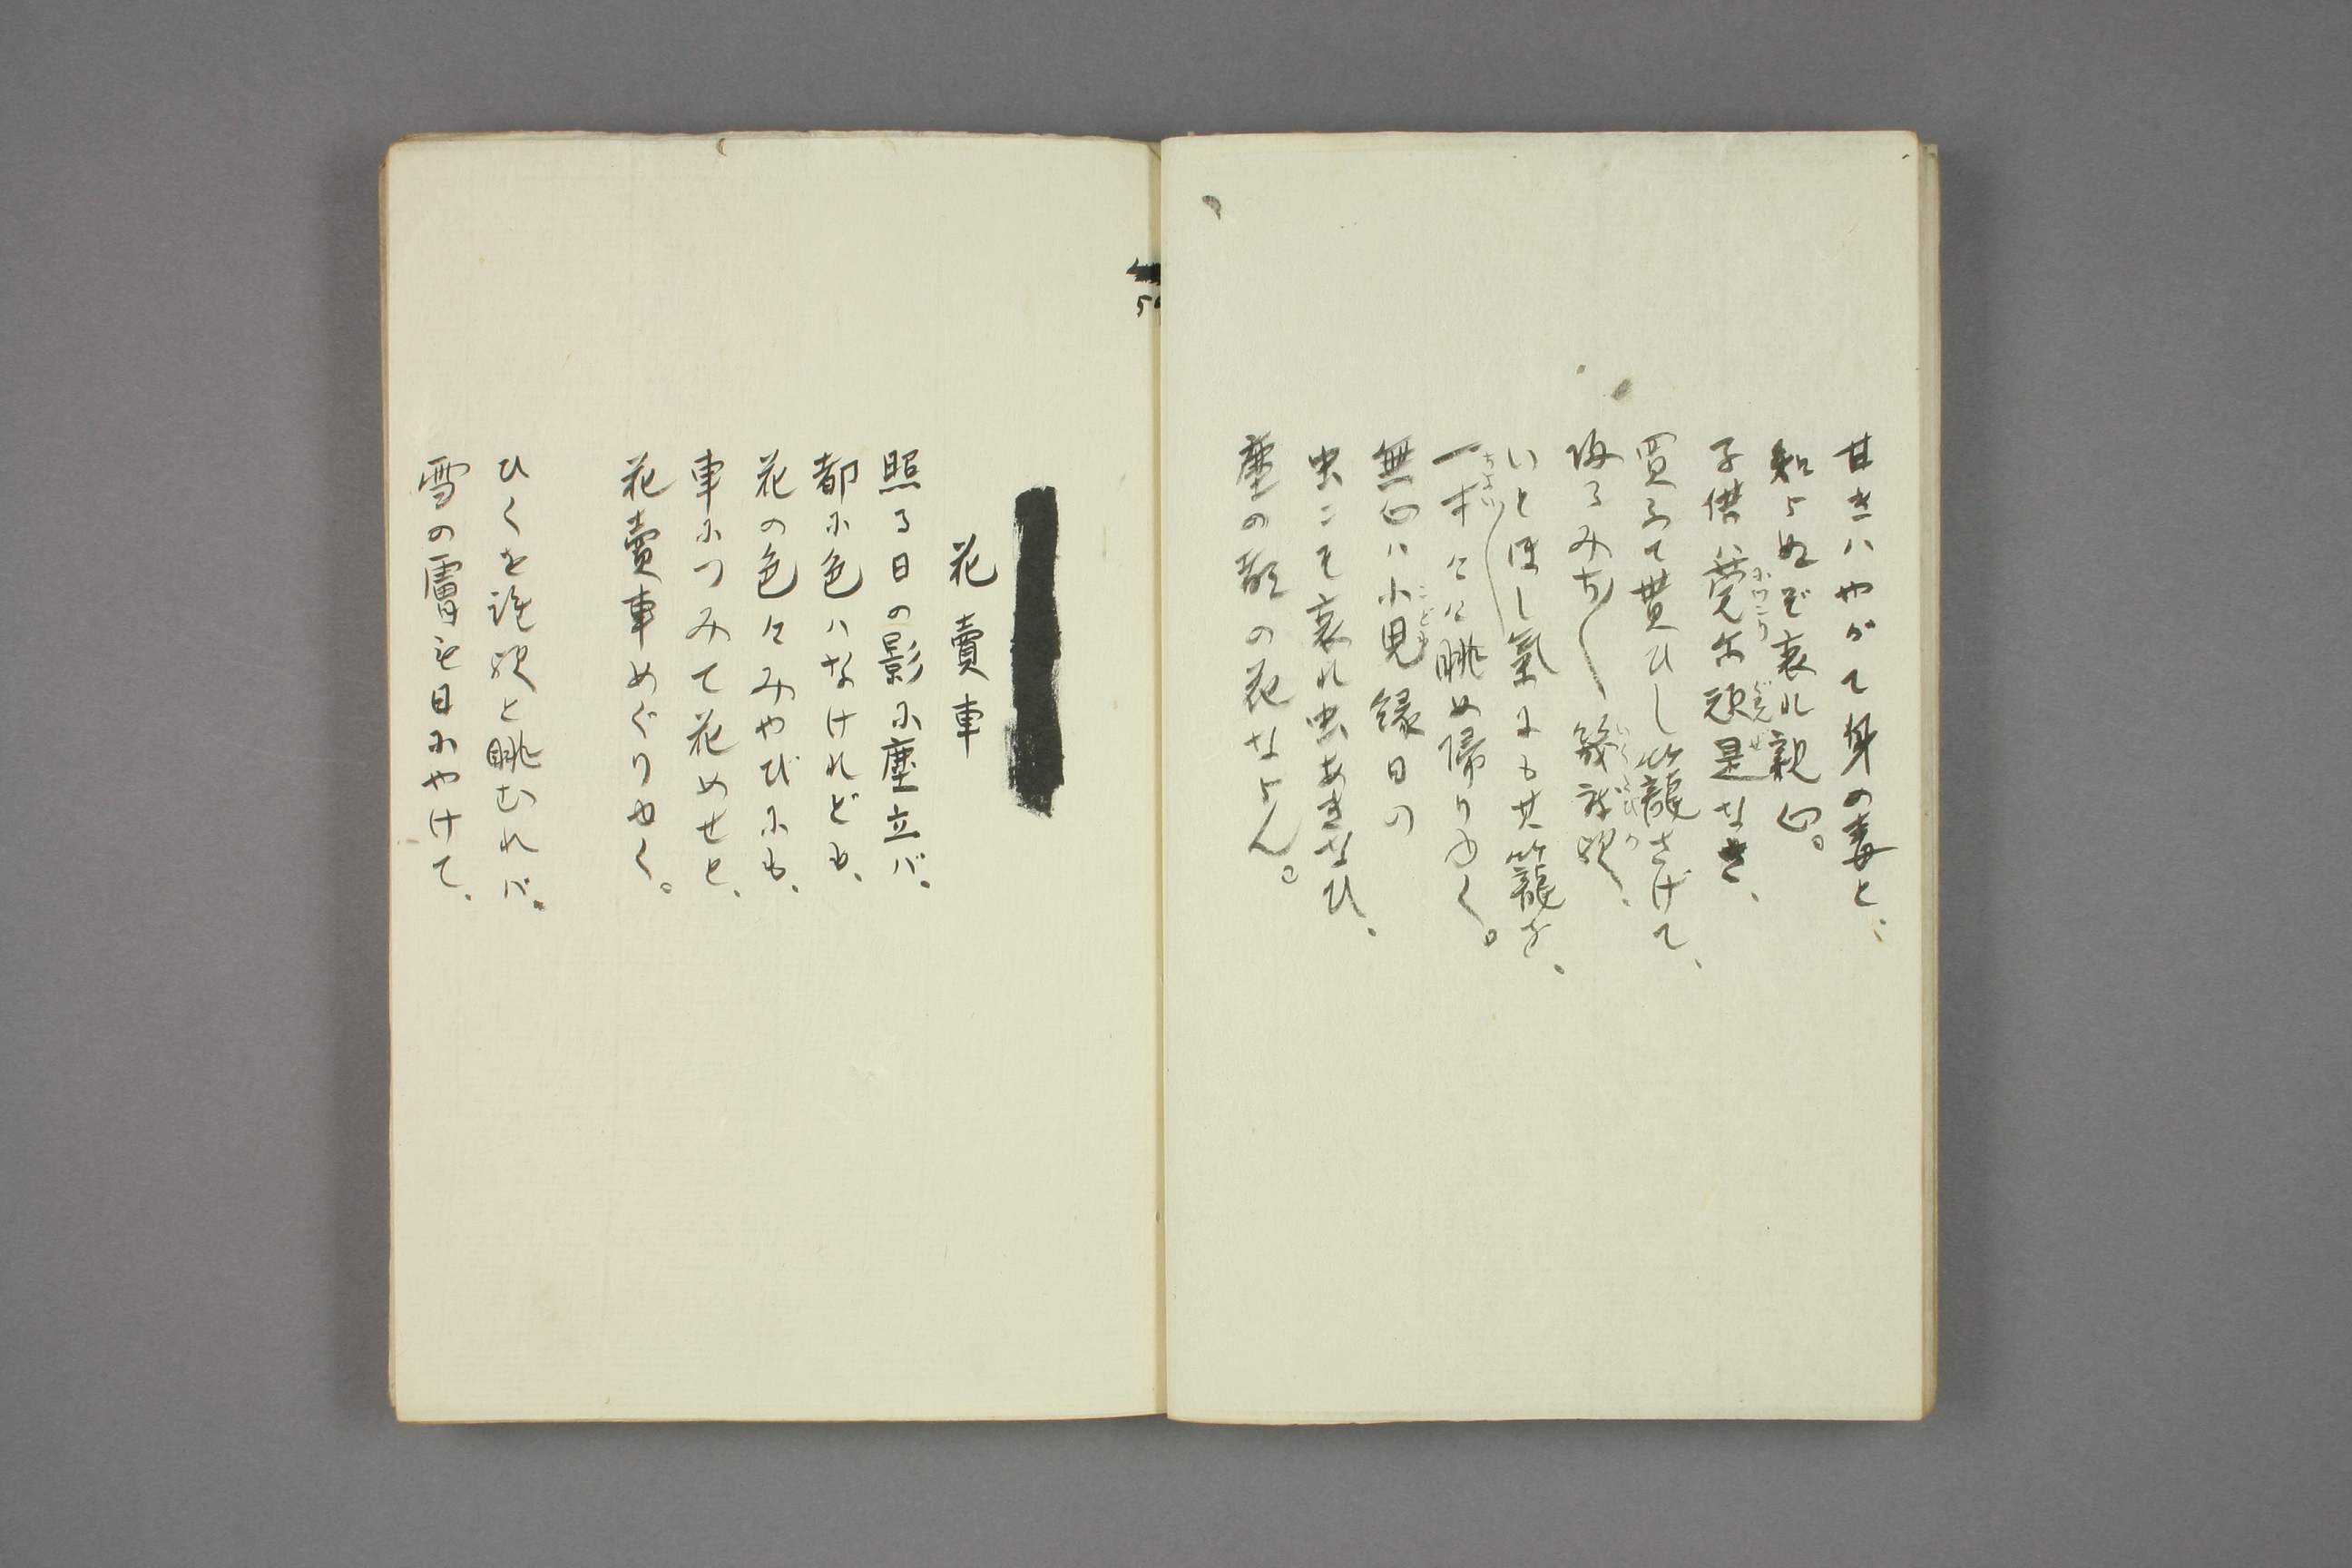 甘きハやがて身の毒と、
知らぬぞ哀れ親心。
子供ハ莞尓頑是なき、
買ふて貰ひし籠さげて、
帰るみち〱幾群歟、
いとほし氣にも其籠を、
一寸々々眺め帰りゆく。
無心ハ小児縁日の
虫こそ哀れ虫あきなひ、
塵の都の花ならん。
花賣車
照る日の影に塵立バ、
都に色ハなけれども、
花の色々みやびにも、
車につみて花めせと、
花賣車めぐりゆく。
ひくを誰歟と眺むれバ、
雪の膚も日にやけて、